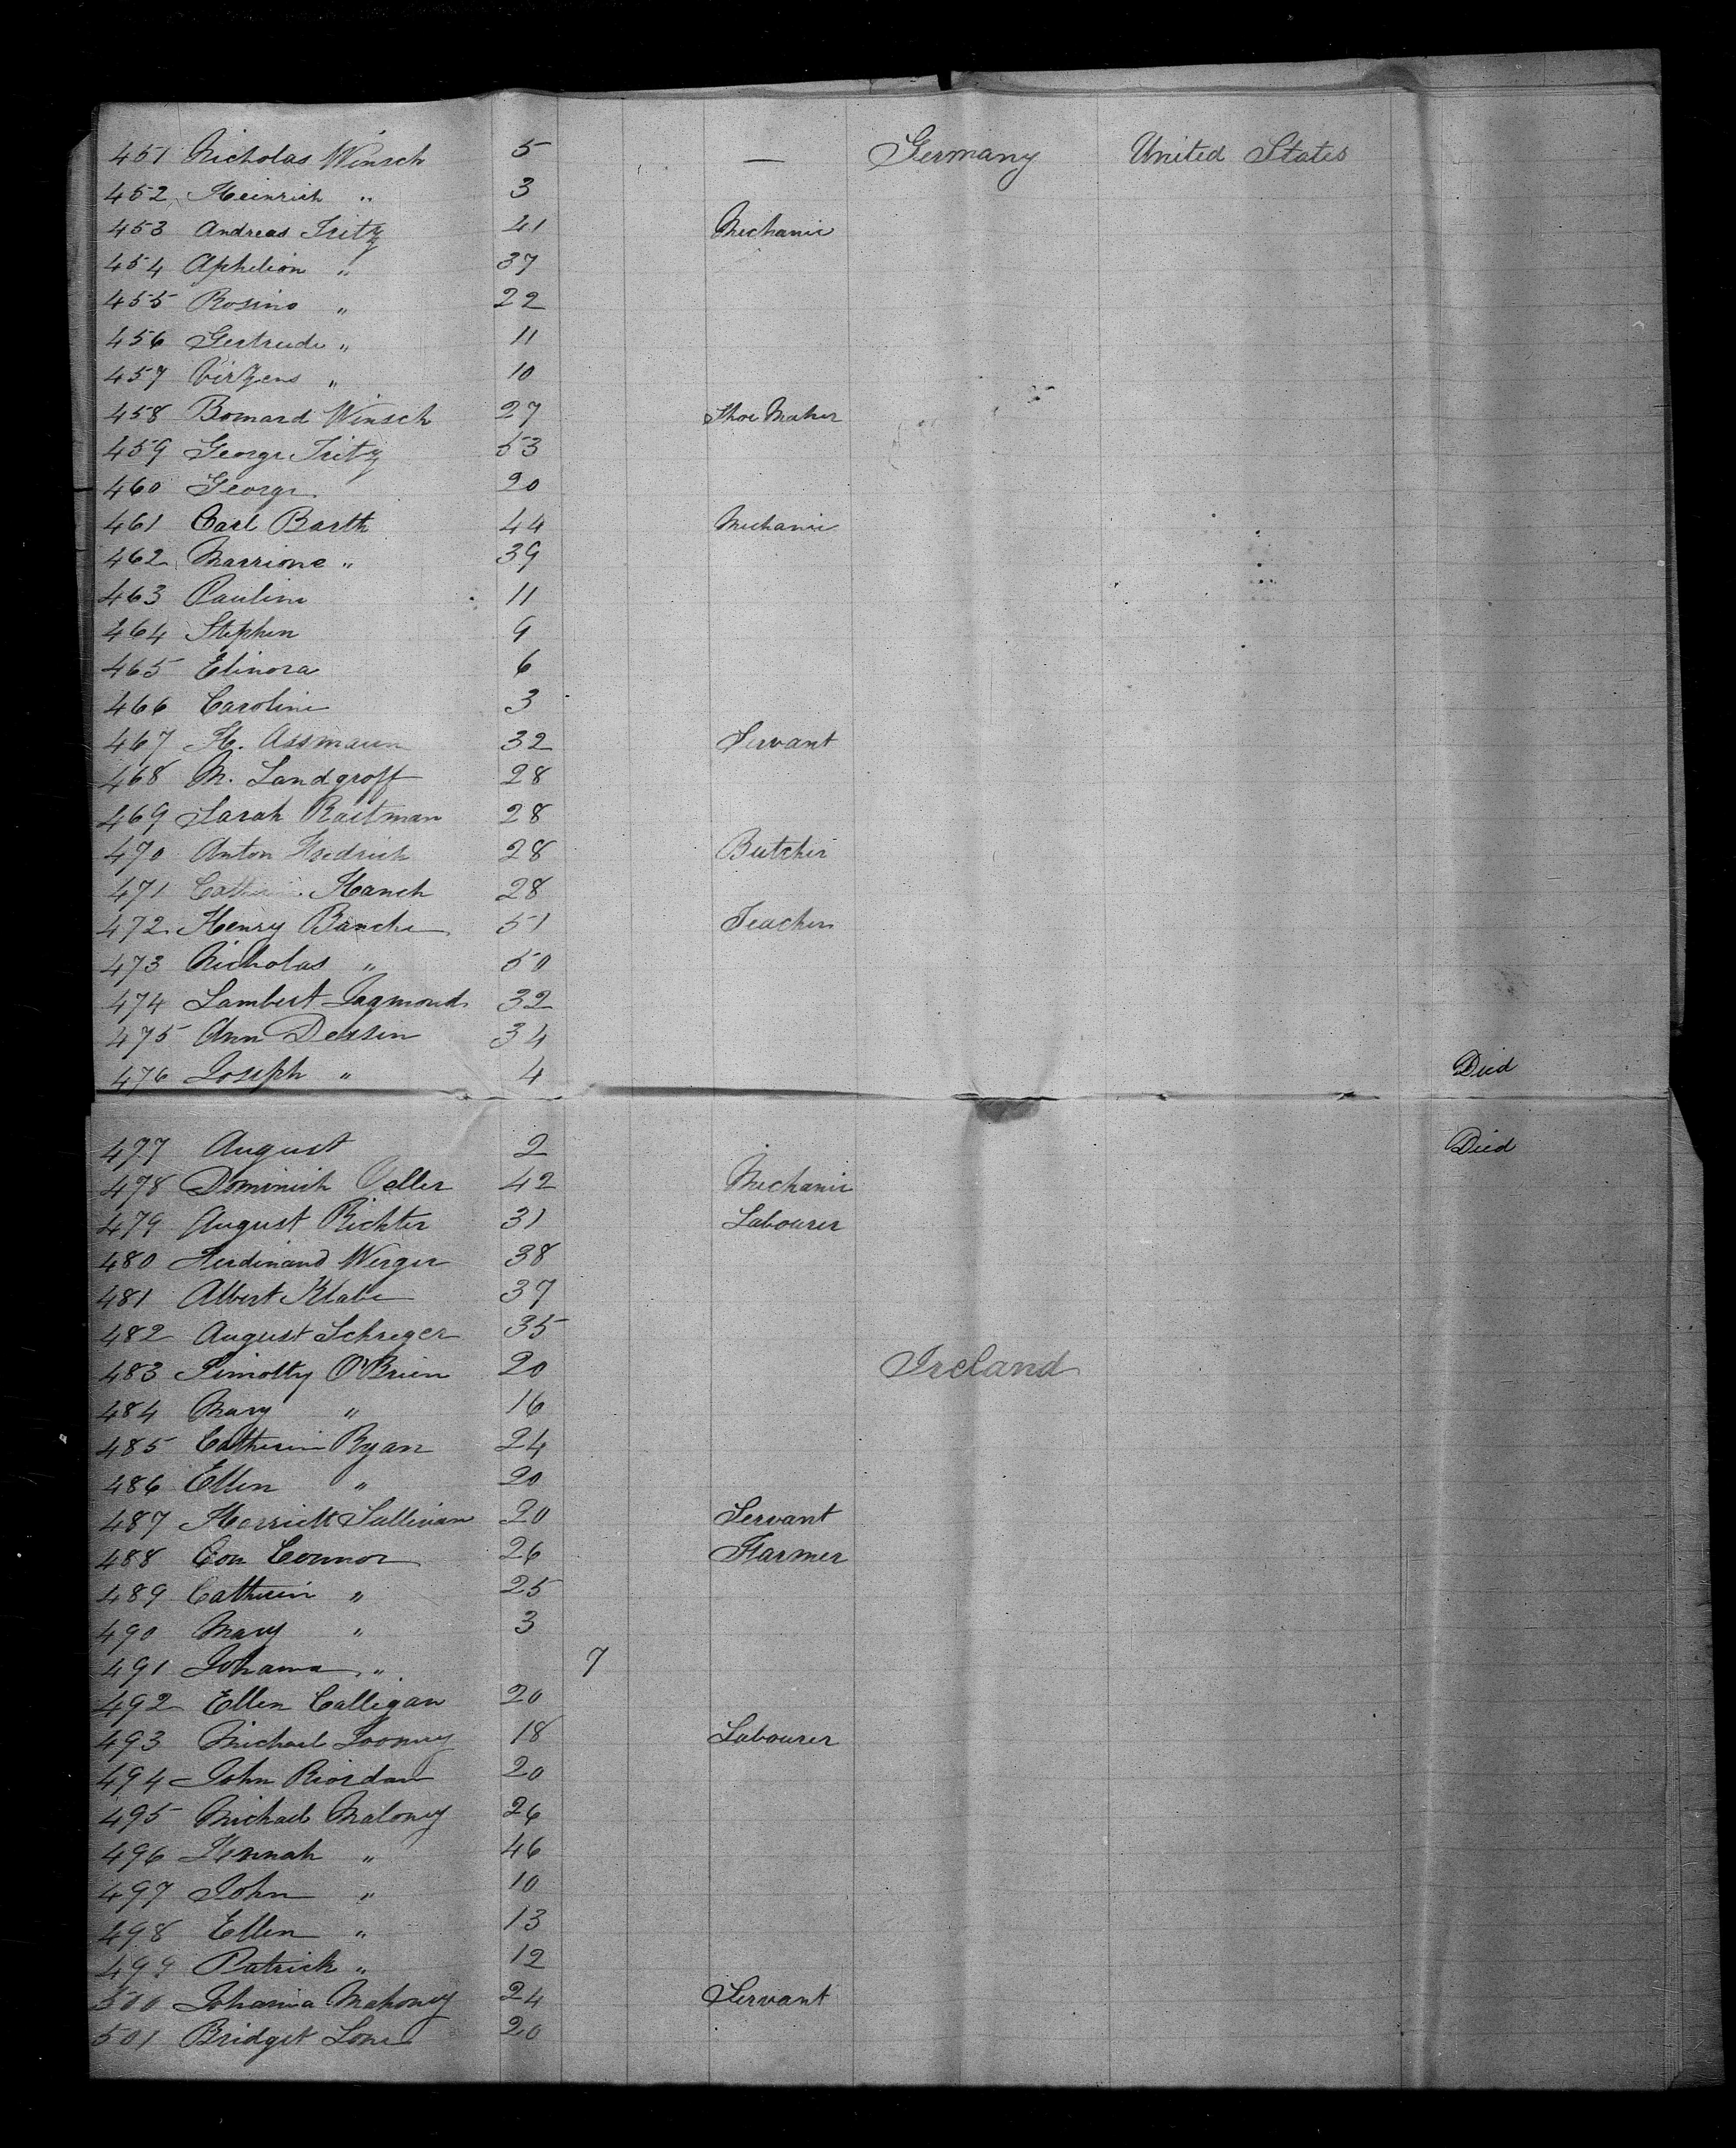 451 Nicholas Winsch 5 — Germany United States
452 Heinrich " 3
453 Andreas Fritz 41 Mechanic
454 Aphelion " 37
455 Rosino " 22
456 Gertrude " 11
457 " 10
458 Bomard Winsch 27 Shoe Maker
459 George Fritz 53
460 George 20
461 Carl Barth 44 Mechanic
462 Marrione " 39
463 Pauline 11
464 Stephen 9
465 Elinora 6
466 Caroline 3
467 H. Assmann 32 Servant
468 M. Landgroff 28
469 Sarah Raitman 28
470 Anton Fredrich 28 Butcher
471 Hanch 28
472 Henry Banche 51 Teacher
473 Nicholas " 50
474 Lambert 32
475 Ann Dessin 34
476 Joseph " 4 Died
477 August 2 Died
478 Dominick Veller 42 Mechanic
479 August Richter 31 Labourer
480 Ferdinand Werger 38
481 Albert Klabe 37
482 August Schreger 35
483 Timothy O'Brien 20 Ireland
484 Mary " 16
485 Catherin Ryan 24
486 Ellen " 20
487 Sullivan 20 Servant
488 Con Connor 26 Farmer
489 Catherin " 25
490 Mary " 3
491 Johanna " 7
492 Ellen Calligan 20
493 Michael Toomey 18 Labourer
494 John Riordan 20
495 Michael Maloney 26
496 Hannah " 46
497 John " 10
498 Ellen " 13
499 Patrick " 12
500 Johanna Mahoney 24 Servant
501 Bridget Lone 20